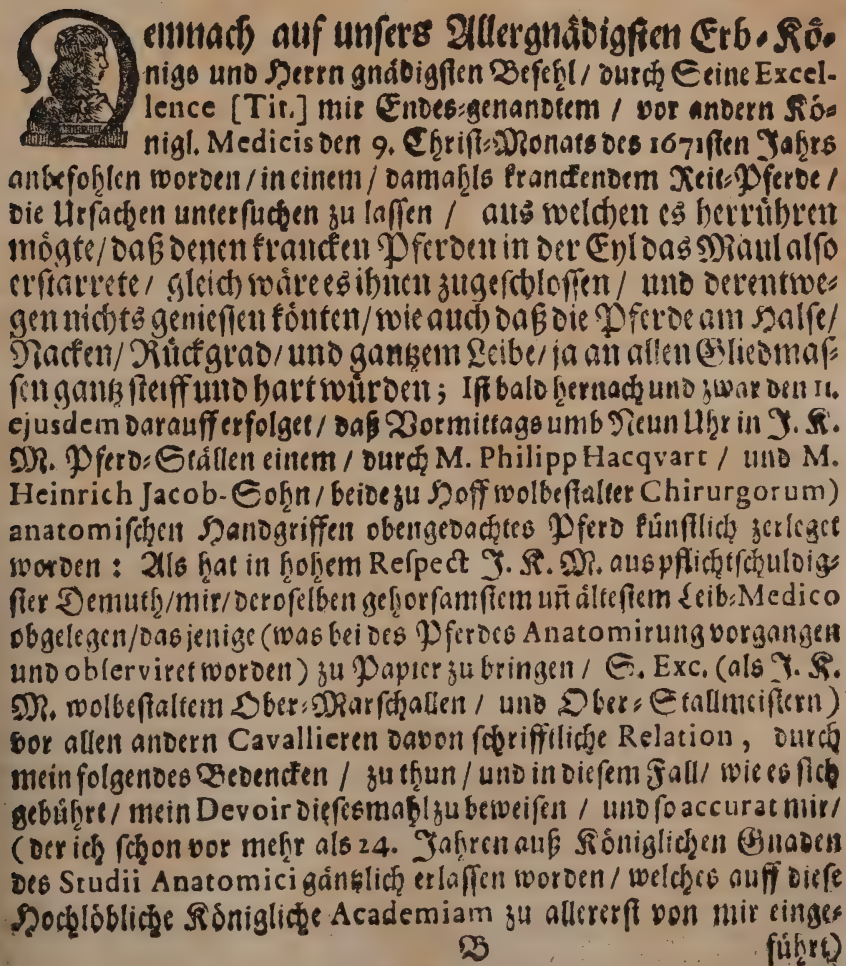 Demnach auf unsers Allergnädigsten Erb-Kö-
nigs und Herrn gnädigsten Befehl/ durch Seine Excel-
lence [Tit.] mir Endes-genandtem / vor andern Kö-
nigl. Medicis den 9. Christ-Monats des 1671sten Jahrs
anbefohlen worden / in einem / damahls kranckendem Reit-Pferde /
die Ursachen untersuchen zu lassen / aus welchen es herrühren
mögte/ daß denen krancken Pferden in der Eyl das Maul also
erstarrete / gleich wäre es ihnen zugeschlossen / und derentwe-
gen nichts geniessen könten/ wie auch daß die Pferde am Halse/
Nacken/ Rückgrad/ und gantzem Leibe/ ja an allen Gliedmas-
sen gantz steiff und hart würden; Ist bald hernach und zwar den 11.
ejusdem darauff erfolget / daß Vormittags umb Neun Uhr in J. K.
M. Pferd-Ställen einem / durch M. Philipp Hacqvart / und M.
Heinrich Jacob-Sohn / beide zu Hoff wolbestalter Chirurgorum)
anatomischen Handgriffen obengedachtes Pferd künstlich zerleget
worden : Als hat in hohem Respect J. K. M. aus pflichtschuldig-
ster Demuth/ mir/ deroselben gehorsamstem uñ ältestem Leib-Medico
obgelegen/ dasjenige (was bei des Pferdes Anatomirung vorgangen
und observiret worden) zu Papier zu bringen / S. Exc. (als J. K.
M. wolbestaltem Ober-Marschallen / und Ober-Stallmeistern)
vor allen andern Cavallieren davon schrifftliche Relation, durch
mein folgendes Bedencken / zu thun / und in diesem Fall/ wie es sich
gebührt / mein Devoir diesesmahl zu beweisen / und so accurat mir/
(der ich schon vor mehr als 24. Jahren auß Königlichen Gnaden
des Studii Anatomici gäntzlich erlassen worden / welches auff diese
Hochlöbliche Königliche Academiam zu allererst von mir einge-
B führt)